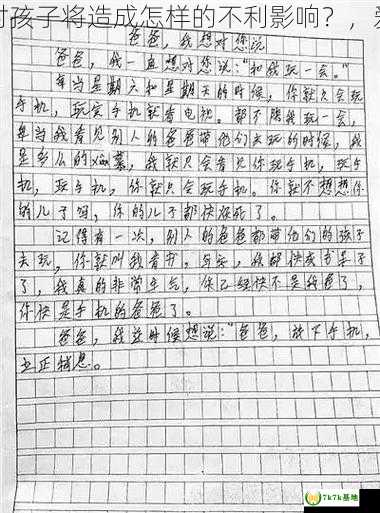 对孩子将造成怎样的不利影响?,
爸爸,我想对您说
爸爸,我一直想对您说:"和我玩一会。"
每当星期六和星期天的时候,你就只会玩
手机,玩完手机就看电视。都不陪我玩一会,
每当我看见别人的爸爸带他们去玩的时候,我
是多么的xian慕,我就只会看见你玩手机,玩手
机,玩手机,你就只会玩手机。你就不想想你
的儿子吗,你的儿子都快孤死了。
记得有一次,别人的爸爸都带他们的孩子
去玩,你就叫我看书,写字,我都快成书呆子
了,我真的非常生气,你已经快不是我爸了,
你快是手机的爸爸了。
爸爸,我这时候想说:"爸爸,放下手机,
立正稍息。
7k7k基地